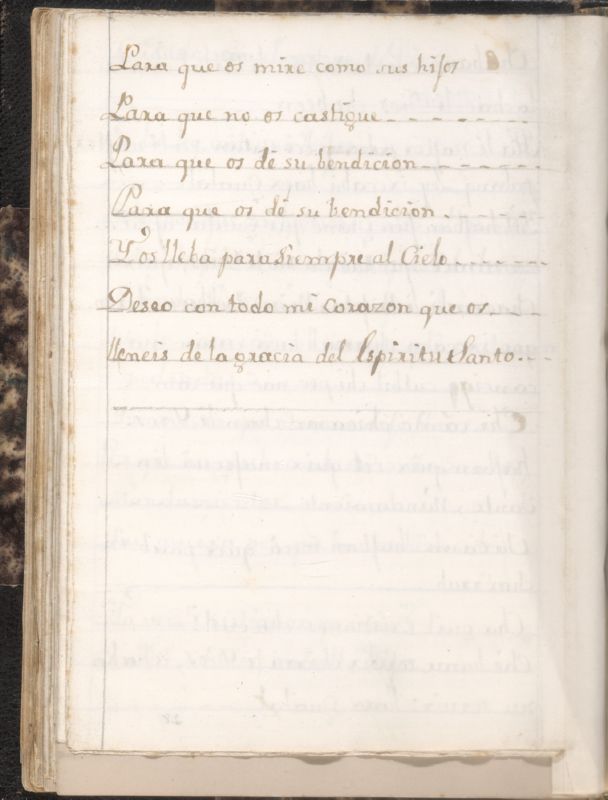 Para que os mire como sus hijos
Para que no os castigue - - - - - - -
Para que os de su bendicion - - - - - -
Para que os dé su bendicion - - - - -
Y os lleba para siempre al Cielo - - - - -
Deseo con todo mi corazon que os - -
lleneis de la gracia del Espiritu Santo. - -